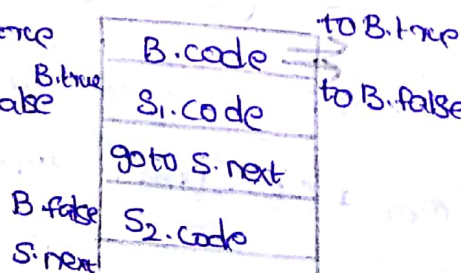 B.code to B.true
B.true
S₁.code to B.false
goto S.next
B.false S₂.code
S.next